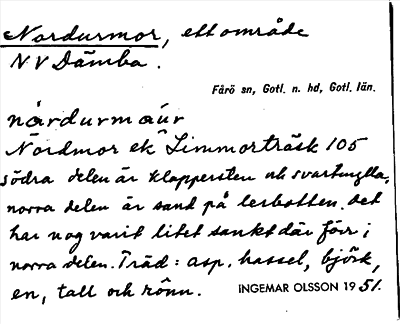 Nordurmor, ett område
NV Dämba.
Fårö sn, Gotl. n. hd, Gotl. län.
nårdurmäur
Nordmor ek Limmorträsk 105
södra delen är klappersten och svartmylla,
norra delen är sand på lerbotten. det
har nog varit litet sankt där förr i
norra delen. Träd: asp, hassel, björk,
en, tall och rönn. INGEMAR OLSSON 1951.